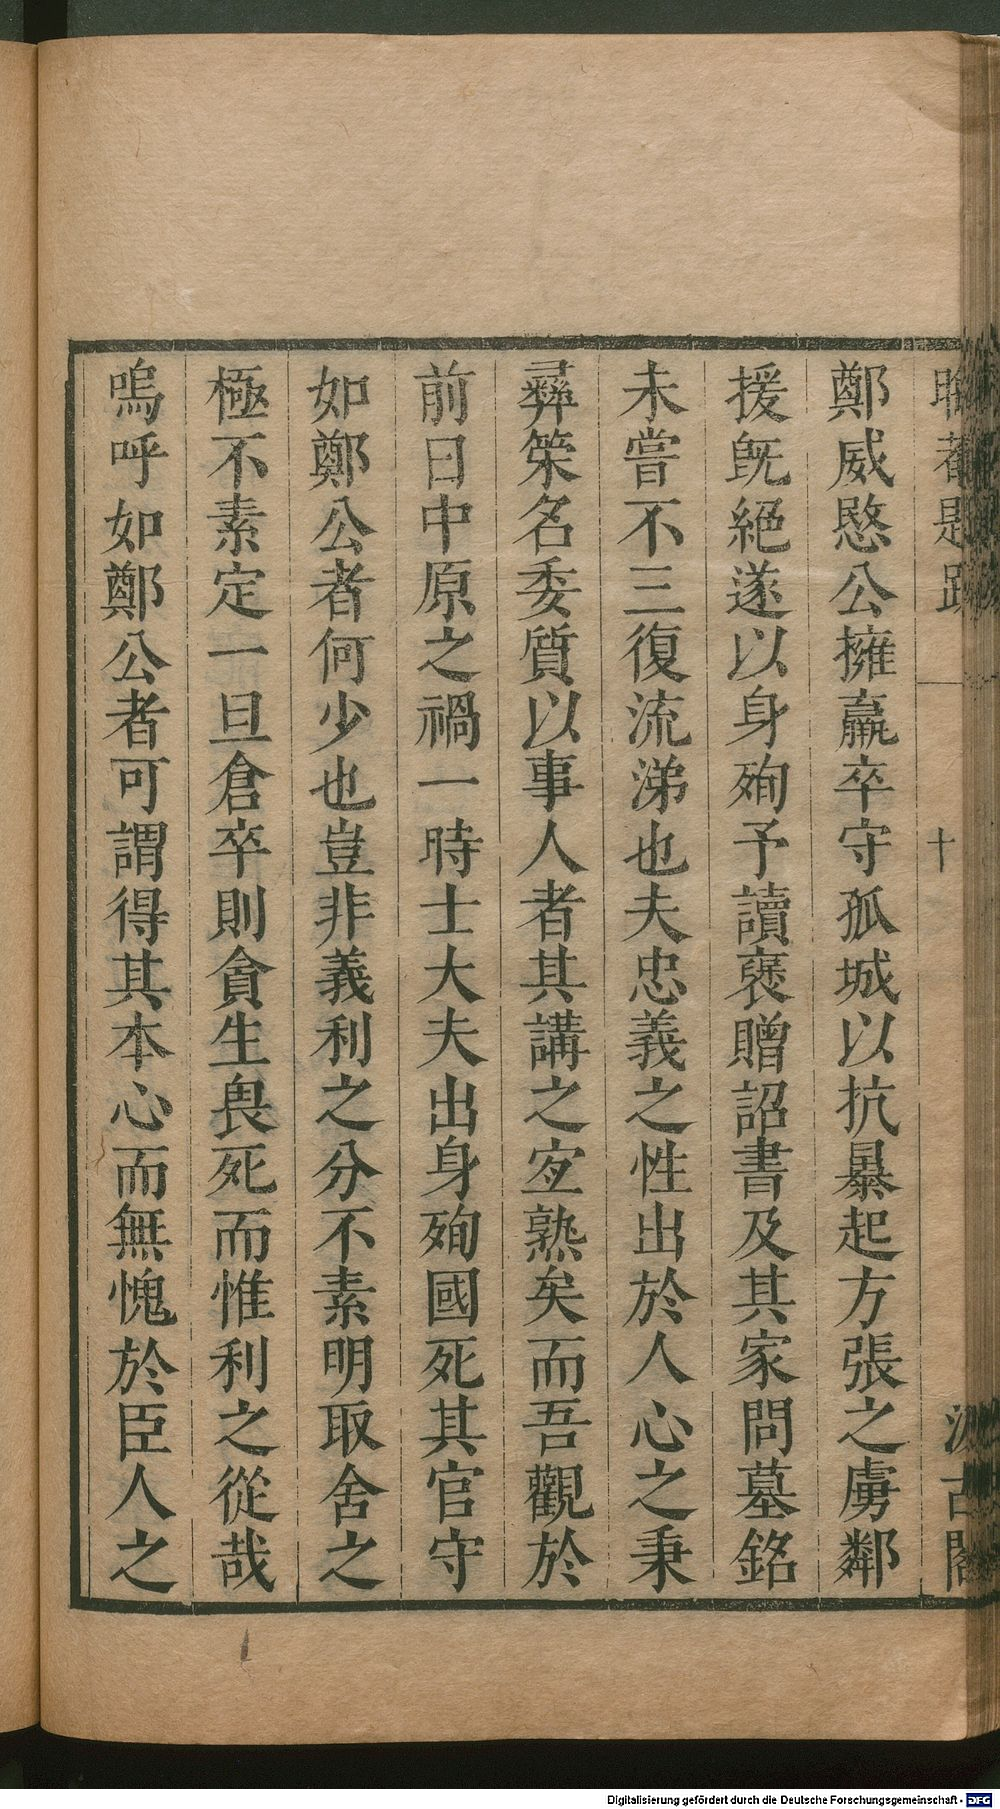 晦菴題跋
十
汲古閣
鄭威愍公擁羸卒守孤城以抗暴起方張之虜鄰
援旣絕遂以身殉予讀褒贈詔書及其家問墓銘
未嘗不三復流涕也夫忠義之性出於人心之秉
彛筞名委質以事人者其講之㝎熟矣而吾觀於
前日中原之禍一時士大夫出身殉國死其官守
如鄭公者何少也豈非義利之分不素明取舍之
極不素定一旦倉卒則貪生畏死而惟利之從哉
嗚呼如鄭公者可謂得其本心而無愧於臣人之
Digitalisierung gefördert durch die Deutsche Forschungsgemeinschaft - DFG